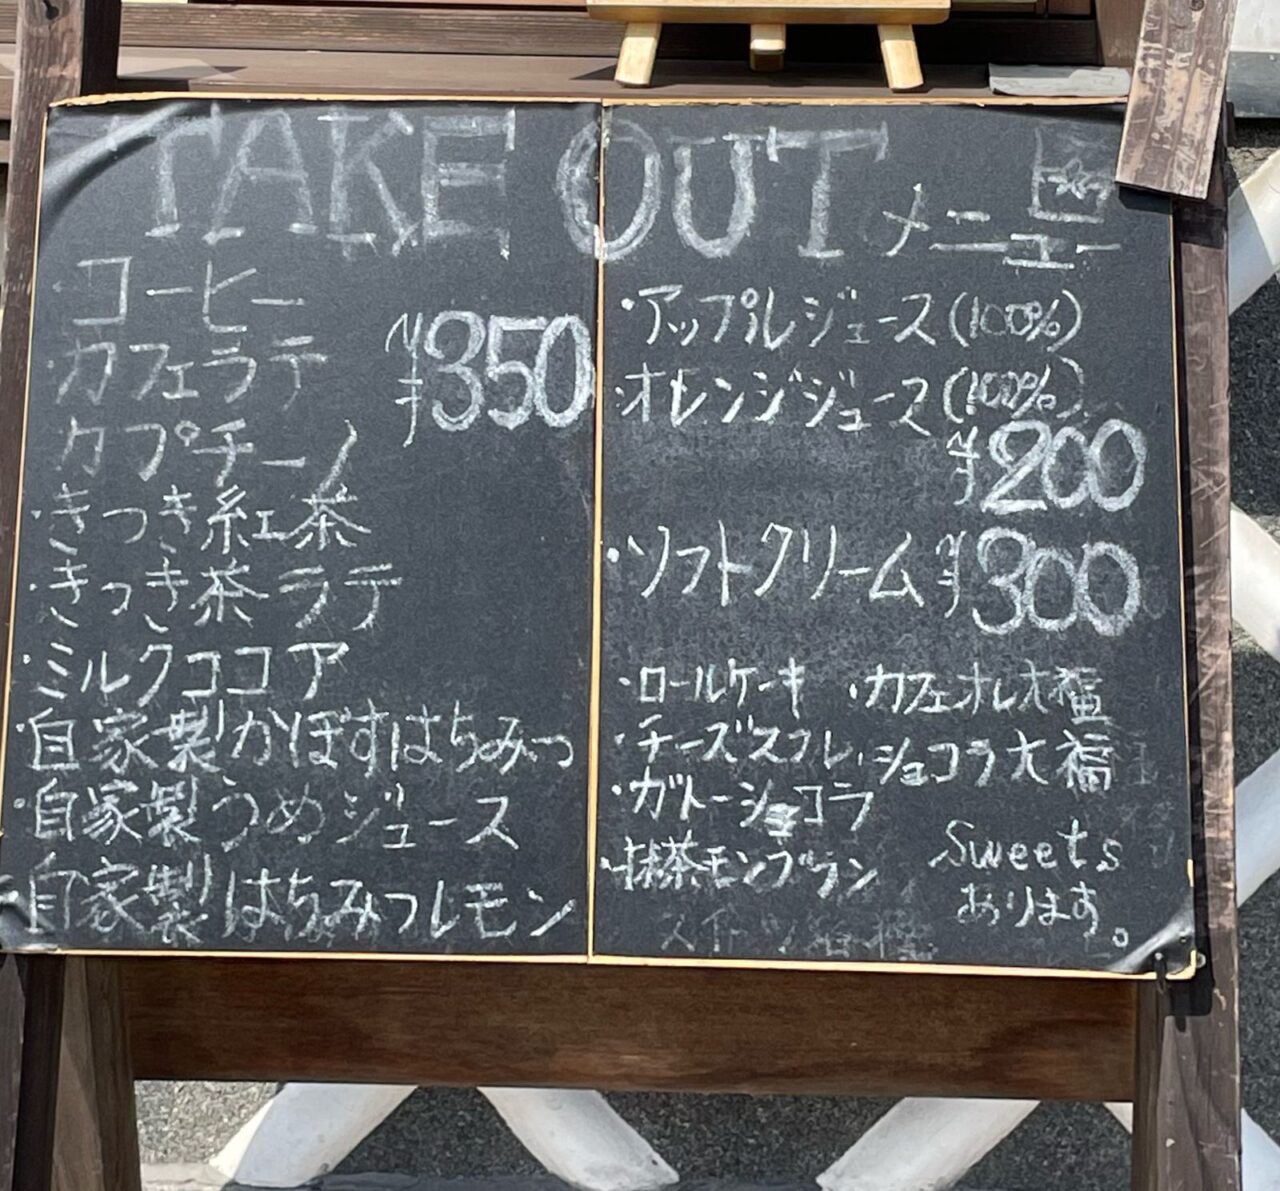 TAKE OUT メニュー
コーヒー
カフェラテ
¥350
カプチーノ
・きつき紅茶
・きつき茶ラテ
・ミルクココア
・自家製かぼすはちみつ
・自家製うめジュース
・自家製はちみつレモン
・アップルジュース(100%)
・オレンジジュース(100%)
¥200
・ソフトクリーム ¥300
・ロールケーキ ・カフェオレ大福
・チーズスフレ ・ショコラ大福
・ガトーショコラ
・抹茶モンブラン
Sweets
あります。